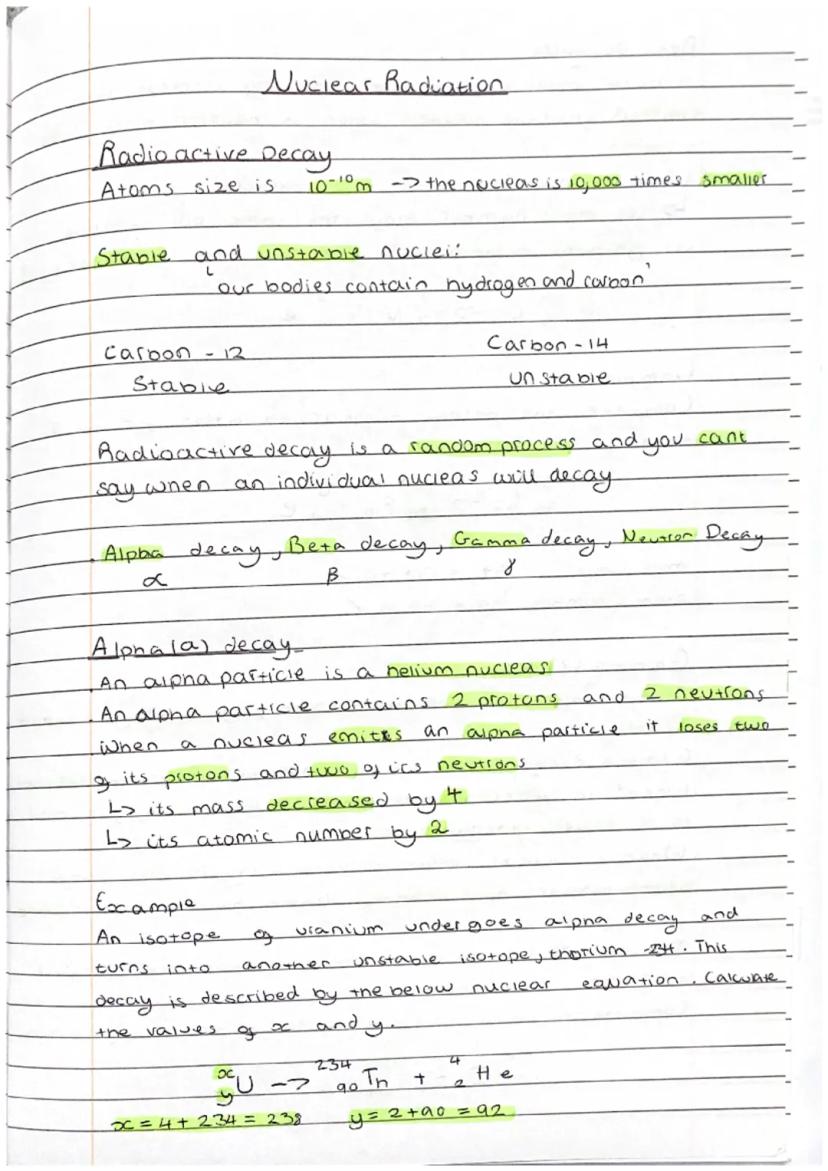 Nuclear Radiation
Radioactive Decay
Atoms size is 10⁻¹⁰m -> the nucleas is 10,000 times smaller
Stable and unstable nuclei:
our bodies contain hydrogen and carbon
Carbon - 12 Carbon - 14
Stable unstable
Radioactive decay is a random process and you cant
say when an individual nucleas will decay
. Alpha decay, Beta decay, Gamma decay, Neutron Decay
α β γ
Alpha (a) decay
. An alpha particle is a helium nucleas
. An alpha particle contains 2 protons and 2 neutrons
. When a nucleas emitts an alpha particle it loses two
of its protons and two of its neutrons
↳ its mass decreased by 4
↳ its atomic number by 2
Example
An isotope of uranium undergoes alpha decay and
turns into another unstable isotope, thorium -234. This
decay is described by the below nuclear equation. Calculate
the values of x and y.
ˣᵧU -> ²³⁴₉₀Th + ⁴₂He
x = 4 + 234 = 238 y = 2 + 90 = 92